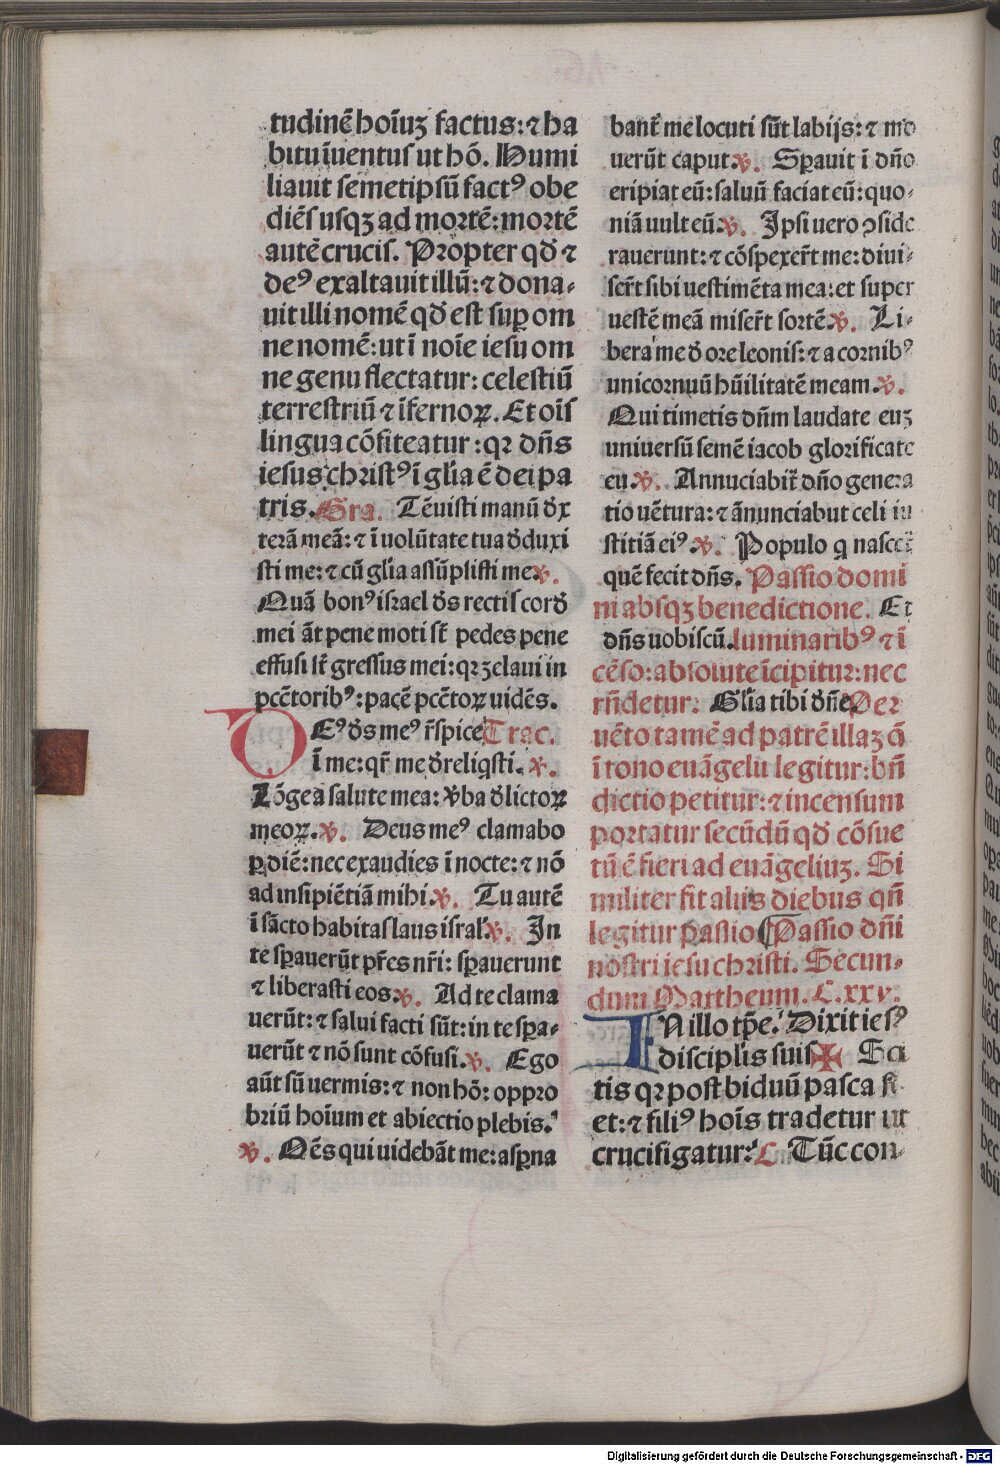 tudinē hoīuꝫ factus: ⁊ ha
bitu īuentus ut hō. Humi
liauit semetipsū factꝰ obe
diēs usqꝫ ad mortē: mortē
autē crucis. Propter qđ ⁊
deꝰ exaltauit illū: ⁊ dona-
uit illi nomē qđ est suꝑ om
ne nomē: ut ī noīe iesu om
ne genu flectatur: celestiū
terrestriū ⁊ īfernoꝝ. Et oīs
lingua cōfiteatur: qꝛ dn̄s
iesus christꝰ ī gl̄ia ē dei pa
tris. Gra. Tēuisti manū đx
terā meā: ⁊ ī uolūtate tua đduxi
sti me: ⁊ cū gl̄ia assūpsisti me ꝟ.
Quā bonꝰ israel đs rectis corđ
mei āt pene moti st̄ pedes pene
effusi st̄ gressus mei: qꝛ zelaui in
pctōribꝰ: pacē pctōꝝ uidēs.
DEꝰ đs meꝰ r̄spice Trac.
ī me: qr̄ me đreliqsti. ꝟ.
Lōge a salute mea: ꝟba đlictoꝝ
meoꝝ. ꝟ. Deus meꝰ clamabo
ꝑ diē: nec exaudies ī nocte: ⁊ nō
ad insipiētiā mihi. ꝟ. Tu autē
ī sācto habitas laus isral̄. ꝟ. In
te sꝑauerūt pr̄es nr̄i: sꝑauerunt
⁊ liberasti eos. ꝟ. Ad te clama
uerūt: ⁊ salui facti sūt: in te sꝑa-
uerūt ⁊ nō sunt cōfusi. ꝟ. Ego
aūt sū uermis: ⁊ non hō: oppro
briū hoīum et abiectio plebis.
ꝟ. Oēs qui uidebāt me: asꝑna
bant̄ me locuti sūt labijs: ⁊ mo
uerūt caput ꝟ. Sꝑauit ī dn̄o
eripiat eū: saluū faciat eū: quo-
niā uult eū. ꝟ. Ipsi uero ꝯside
rauerunt: ⁊ cōspexer̄t me: diui-
ser̄t sibi uestimēta mea: et super
uestē meā miser̄t sortē. ꝟ. Li-
bera me đ ore leonis: ⁊ a cornibꝰ
unicornuū hūilitatē meam. ꝟ.
Qui timetis dn̄m laudate euꝫ
uniuersū semē iacob glorificate
eu. ꝟ. Annuciabit̄ dn̄o genera
tio uētura: ⁊ ānunciabut celi iu
stitiā eiꝰ. ꝟ. Populo q nascet̄
quē fecit dn̄s. Passio domi
ni absqꝫ benedictione. Et
dn̄s uobiscū. luminaribꝰ ⁊ ī
cēso: absolute īcipitur: nec
rn̄detur. Gl̄ia tibi dn̄e. Der
uēto tamē ad patrē illaꝫ ō
ī tono euāgelii legitur: bn̄
dictio petitur: ⁊ incensum
portatur secūdū qđ cōsue
tū ē fieri ad euāgeliuꝫ. Si
militer fit aliis diebus qn̄
legitur passio Passio dn̄i
nostri iesu christi. Secun-
dum Mattheum. C. xxv.
IN illo tp̄e. Dixit iesꝰ
discipl̄is suis ✠ Sci
tis qꝛ post biduū pasca fi
et: ⁊ filiꝰ hoīs tradetur ut
crucifigatur. C Tūc con-
Digitalisierung gefördert durch die Deutsche Forschungsgemeinschaft - DFG